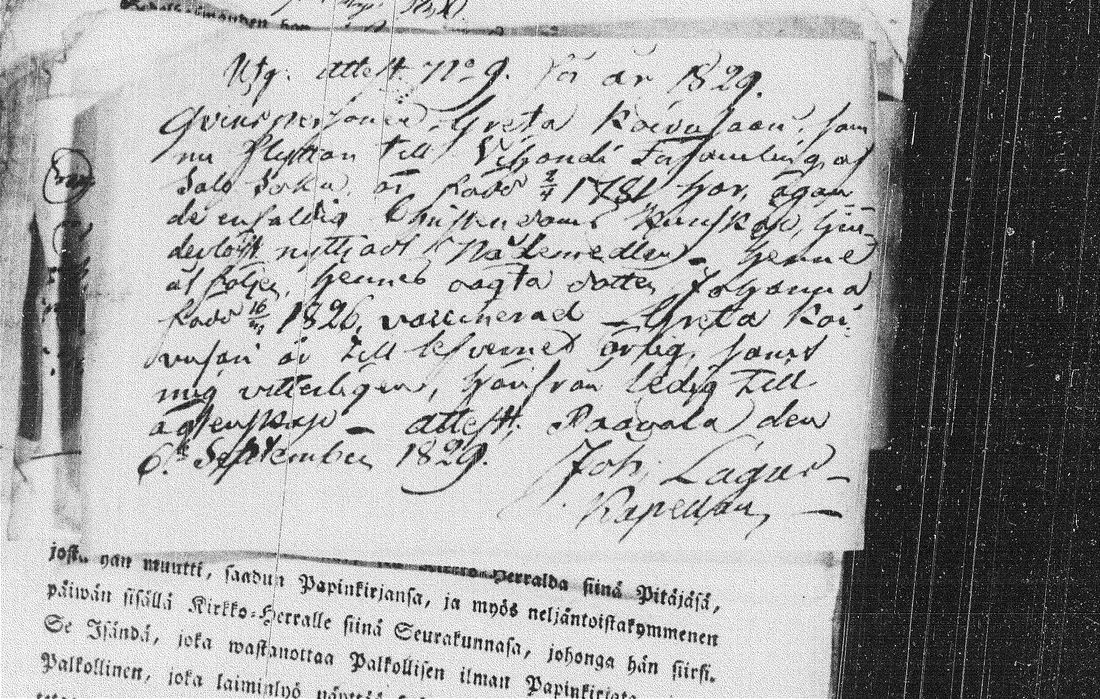 Utg. attest No 9. för år 1829.
Qvinspersonen Greta Koivusaari, som
nu flyttar till Vihandi Församling af
Salo Sokn, är född 2/4 1781 har, ägan
de enfaldig Christendoms Kunskap, hin-
derlöst nyttjadt Nådemedlen – Henne
åtföljer, hennes oägta dotter Johanna
född 16/11 1826, vaccinerad – Greta Koi-
vusari är till lefvernet ärlig, samt
mig vitterligen, härifrån ledig till
ägtenskap – attest. Paavola den
6te September 1829. Joh. Lagus –
Kapellan, –
josta hän muutti, saadun Papinkirjansa, ja myös neljäntoistakymmenen
päiwän sisällä Kirkko-Herralle siinä Seurakunnasa, johonga hän siirsi.
Se Isändä, joka wastanottaa Palkollisen ilman Papinkirjota
Palkollinen, joka laiminlyö näyttää